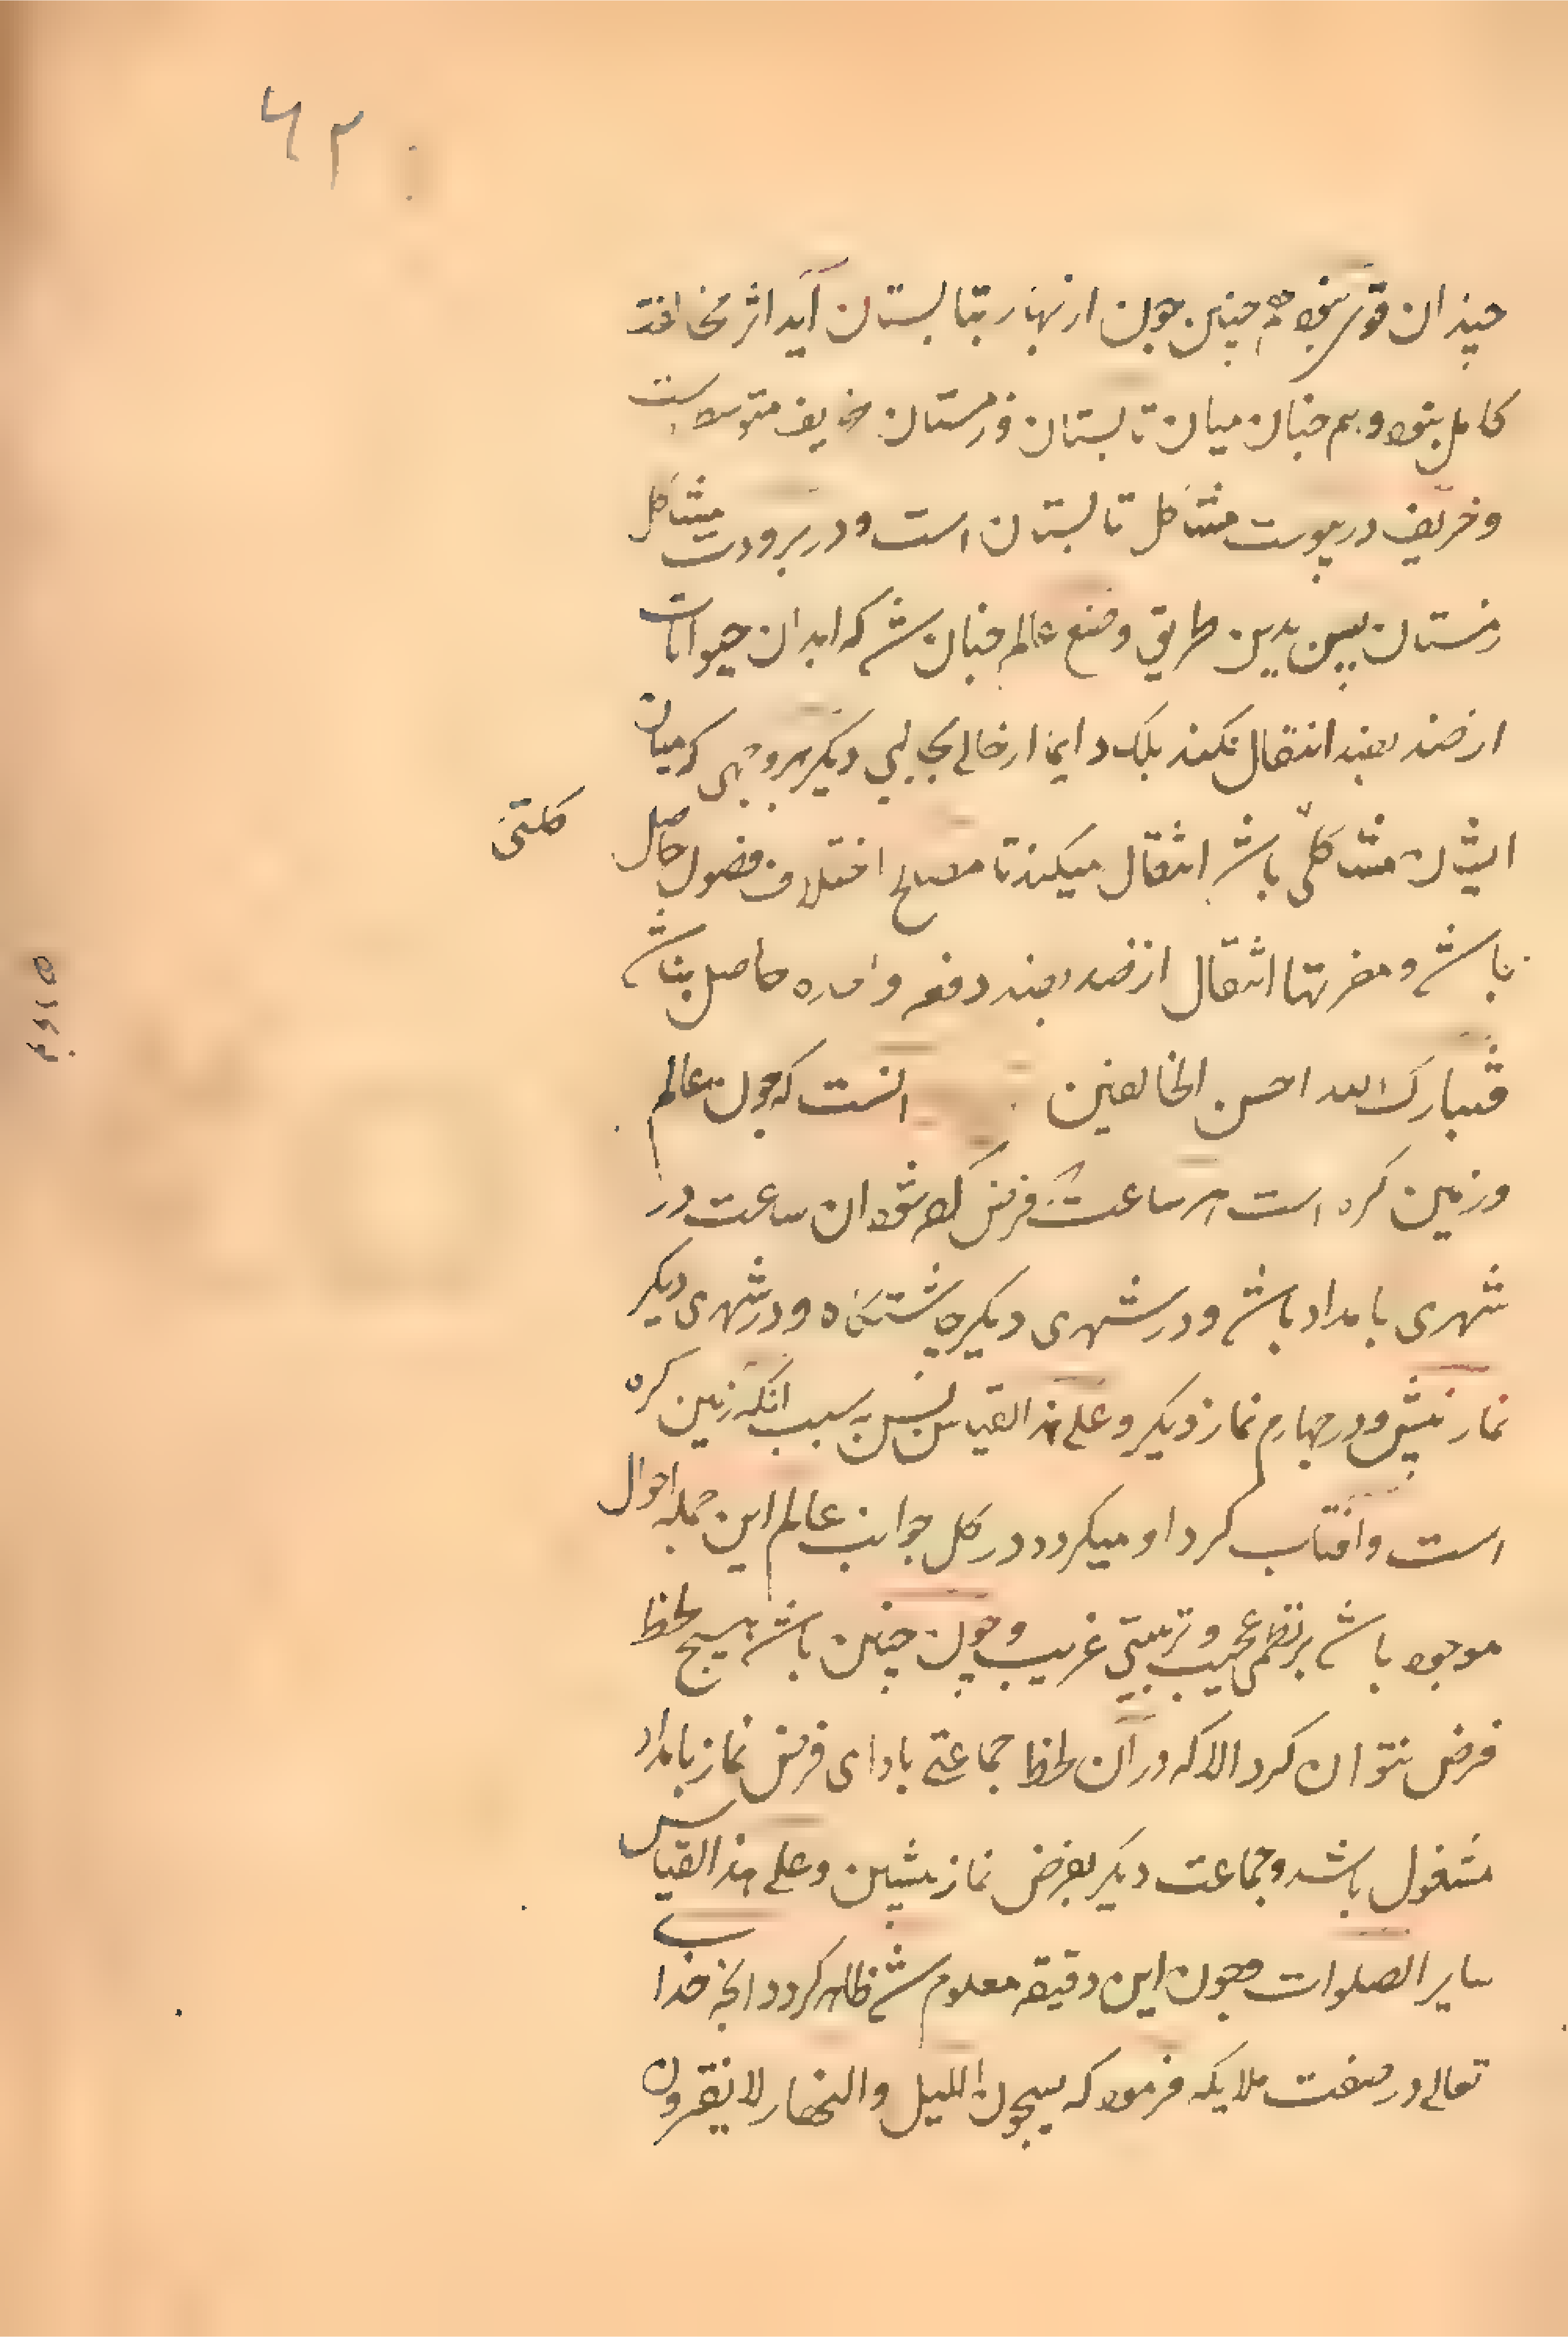 ۶۳
چندان قوی نبود همچنین چون از بهار بتابستان آید اثر مخالفت
کامل نبود و هم چنان میان تابستان و زمستان خریف متوسط است
و خریف در یبوست مشاکل تابستان است و در برودت مشاکل
زمستان پس بدین طریق وضع عالم چنان شد که ابدان حیوانات
از ضد بضد انتقال نکند بلک دایما از حالی بحالی دیگر بروجهی که میان
ایشان مشاکلتی باشد انتقال میکند تا مصالح اختلاف فصول حاصل
باشد و مضرتها انتقال از ضد بضد دفعة واحده حاصل نباشد
فتبارک الله احسن الخالقین انست که چون عالم
و زمین کره است هر ساعت که فرض کرده شود ان ساعت در
شهری بامداد باشد و در شهری دیگر چاشتگاه و در شهری دیگر
نماز پیشین و در چهارم نماز دیگر و علی هذا القیاس پس بسبب انکه زمین کره
است و افتاب کرد او میکردد در کل جوانب عالم این جمله احوال
موجود باشد بر نظمی عجیب و ترتیبی غریب و چون چنین باشد هیچ لحظ
فرض نتوان کرد الا که در آن لحظ جماعتی بادای فرض نماز بامداد
مشغول باشد و جماعت دیگر بفرض نماز پیشین و علی هذا القیاس
سایر الصلوات و چون این دقیقه معلوم شد ظاهر کردد انچه خدای
تعالی در صفت ملایکه فرمود که یسبحون اللیل والنهار لا یفترون